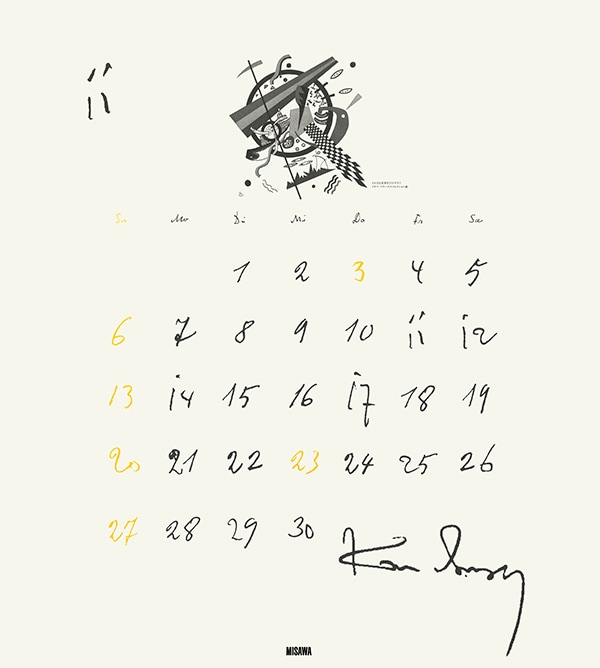 11
So Mo Di Mi Do Fr Sa
1 2 3 4 5
6 7 8 9 10 11 12
13 14 15 16 17 18 19
20 21 22 23 24 25 26
27 28 29 30
Kandinsky
MISAWA